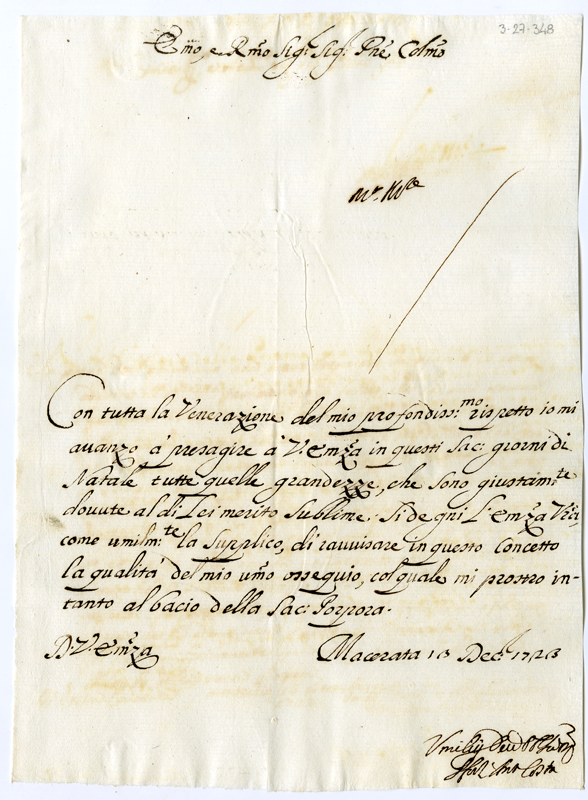 3-27-348
Emo, e Rmo Sig.r Sig.r Pne Colmo
Con tutta la Venerazione del mio profondiss:mo rispetto io mi
auanzo à presagire à V. Emza in questi Sac: giorni di
Natale tutte quelle grandezze, che sono giustam:te
dovute al di Lei merito sublime. Si degni L'Emza Vra
come umilm:te la supplico, di rauuisare in questo Concetto
la qualità del mio umo ossequio, col quale mi prostro in-
tanto al bacio della Sac: Porpora.
D. V. Emza
Macerata 13 Dec.r 1723